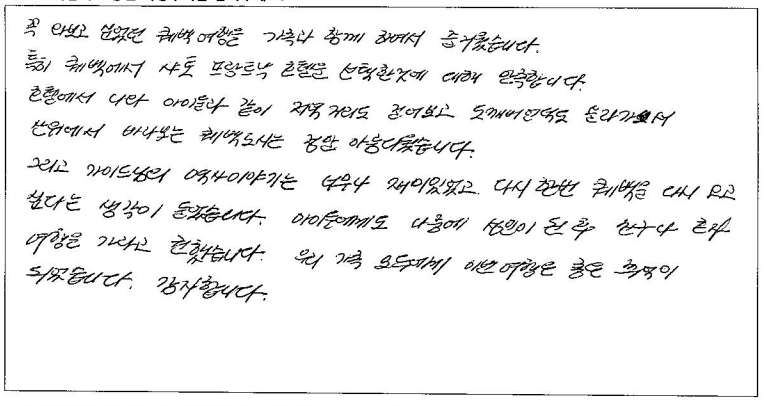 꼭 와보고 싶었던 퀘백여행을 가족과 함께 하여서 즐거웠습니다.
특히 퀘백에서 샤토 프랑트낙 호텔을 선택한것에 대해 만족합니다.
호텔에서 나와 아이들과 같이 저녁거리도 걸어보고 도깨비언덕도 올라가서
언덕에서 바라보는 퀘백도시는 정말 아름다웠습니다.
그리고 가이드님의 역사이야기는 너무나 재미있었고 다시 한번 퀘백을 다시 오고
싶다는 생각이 들었습니다. 아이들에게도 나중에 성인이 된 후 친구나 혼자
여행을 가라고 권했습니다. 우리 가족 모두에게 이번 여행은 좋은 추억이
되었습니다. 감사합니다.